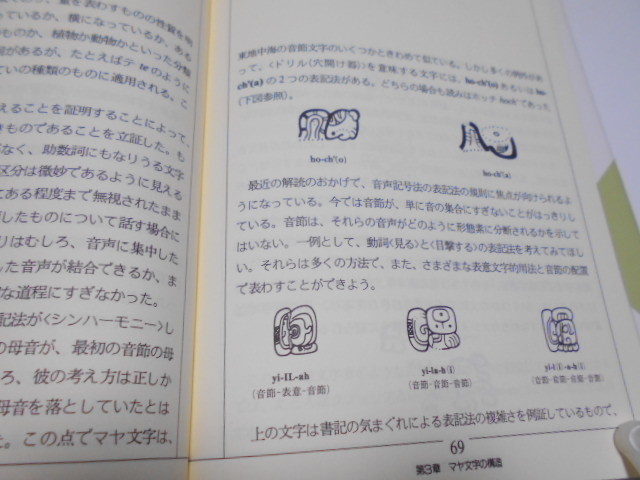 、量を表わすものの性質を明
ているか、横になっているか、ある
ものか、植物か動物かといった分類
詞があるが、たとえばテ teのように
ていの種類のものに適用される。こ
えることを証明することによって、
きものであることを立証した。も
なく、助数詞にもなりうる文字
区分は微妙であるように見える
にある程度まで無視されたまま
したものについて話す場合に
リはむしろ、音声に集中した
した音声が結合できるか、ま
な道程にすぎなかった。
記法が〈シンハーモニー〉し
の母音が、最初の音節の母
ろ、彼の考え方は正しか
母音を落としていたとは
た。この点でマヤ文字は、
東地中海の音節文字のいくつかときわめて似ている。しかし多くの例外があ
って、〈ドリル(穴開け器)〉を意味する文字には、ho-ch'(o)あるいはho-
ch'(a)の2つの表記法がある。どちらの場合も読みはホッチ hoch'であった
(下図参照)。
ho-ch'(o)
ho-ch'(a)
最近の解読のおかげで、音声記号法の表記法の規則に焦点が向けられるよ
うになっている。今では音節が、単に音の集合にすぎないことがはっきりし
ている。音節は、それらの音声がどのように形態素に分断されるかを示して
はいない。一例として、動詞〈見る〉と〈目撃する〉の表記法を考えてみてほし
い。それらは多くの方法で、また、さまざまな表意文字的用法と音節の配置
で表わすことができよう。
yi-IL-ah
yi-la-h(i)
yi-l(i)-a-h(i)
(音節-表意-音節)
(音節-音節-音節)
(音節-音節-音節-音節)
上の文字は書記の気まぐれによる表記法の複雑さを例証しているもので、
69
第3章 マヤ文字の構造